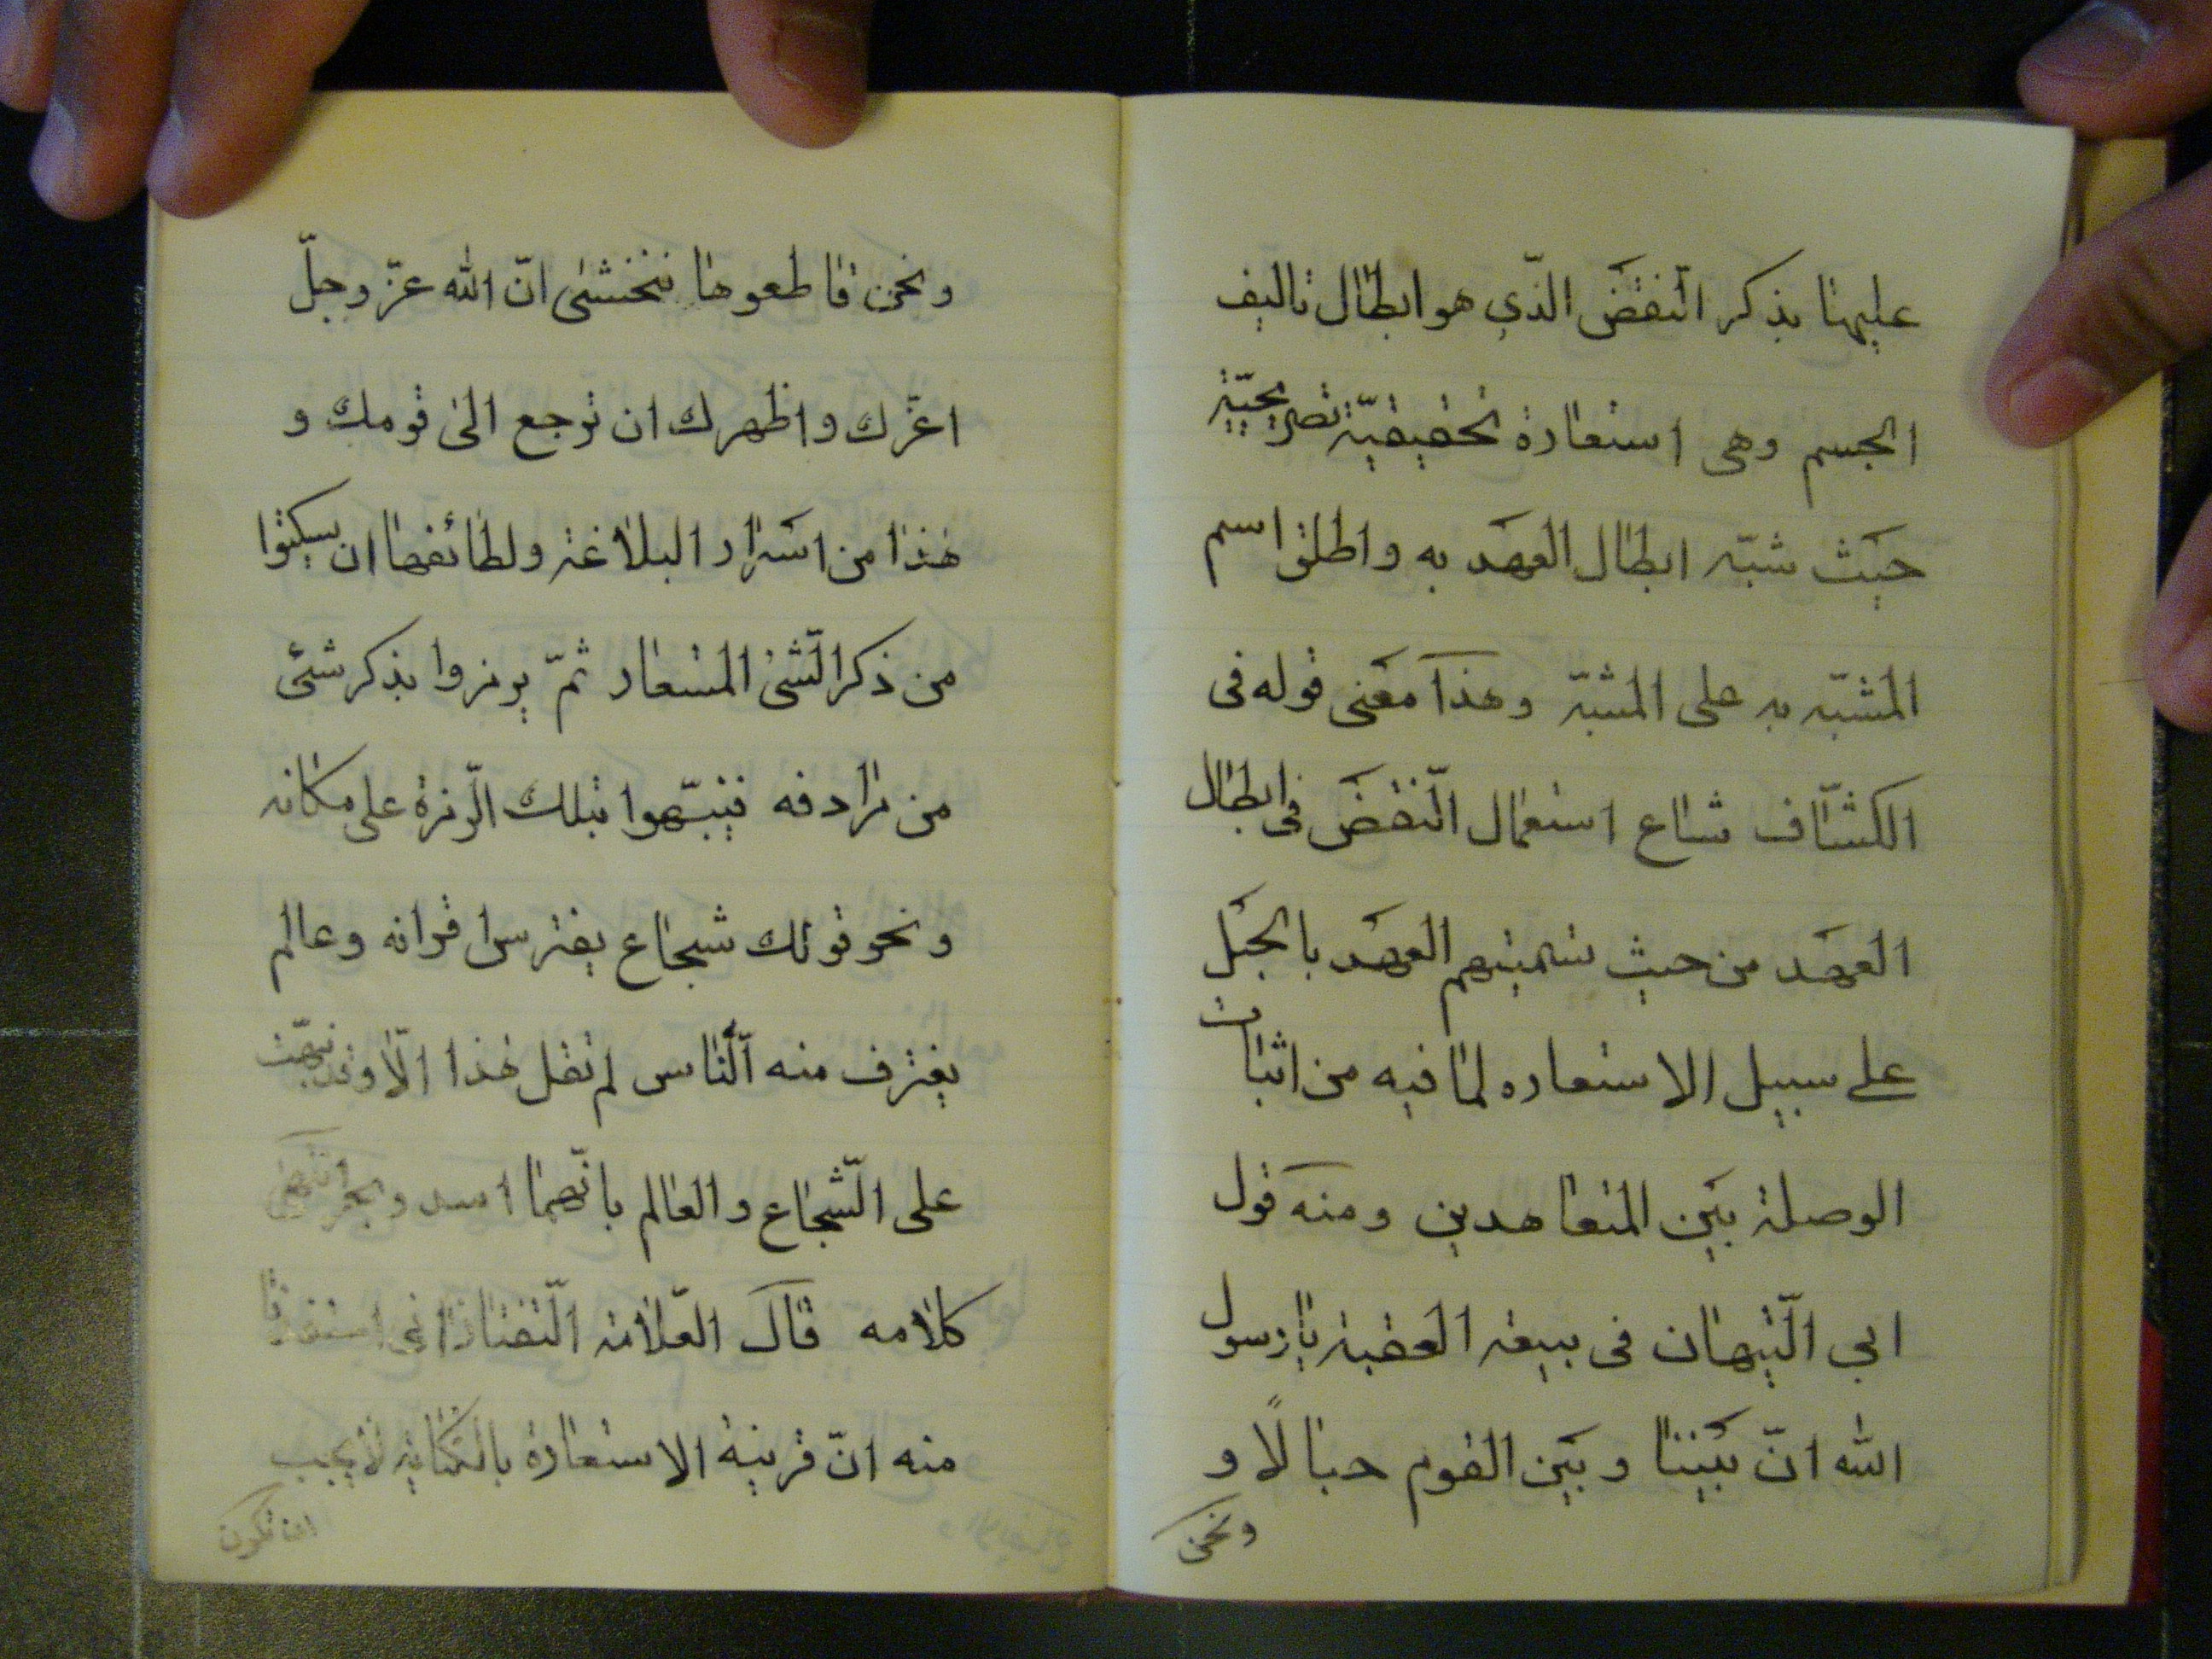 عليهنا بذكر النّقضَ الذّي هو ابطال تاليف
الجسم وهى استعارة تحقيقيّة تصريحيّة
حيَث شبّه ابطال العهَد به واطلق اسم
المشبّه به على المشبّه وهذا معَنى قوله فى
الكشّاف شاع استعمال النّقضَ فى ابطال
العهَد من حيث تسميتهم العهَد بالحبَل
على سبيل الاستعاره لما فيه من اثبات
الوصلة بيَن المتعاهدين ومنه قول
ابي التّيهان فى بيعة العقبة يا رسول
الله انّ بيَننا وبيَن القوم حبالًا و
ونحن
ونحن قاطعوها فنخشى انّ الله عزّ وجلّ
اعزّك واظهرك ان ترجع الى قومك و
هذا من اسَرار البلاغة ولطائفها ان يسكتوا
من ذكر الشّئ المستعار ثمّ يرمزوا بذكر شئ
من مرادفه فينبّهوا بتلك الرّمزة على مكانه
ونحو قولك شجاع يفترس اقرانه وعالم
يغترف منه النّاس لم تقل هذا الّا وقد نبّهت
على الشّجاع والعالم بانّهما اسد وبحر انتهى
كلامه قال العلّامة التّفتازانى استفدنا
منه انّ قرينة الاستعارة بالكناية لا يجب
ان تكون